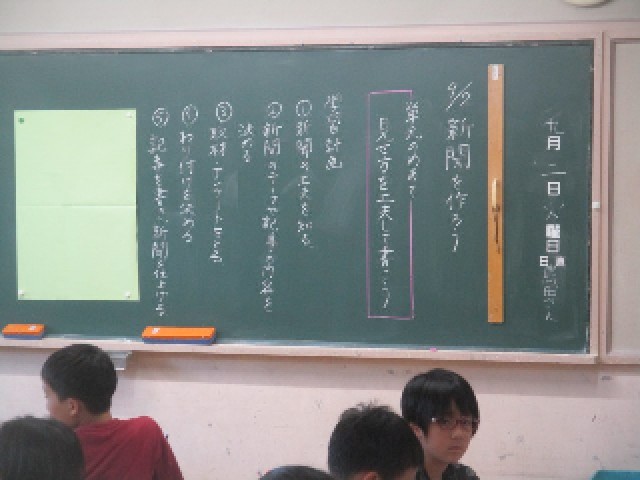 九月二日火曜日
日直
9/2 新聞を作ろう
単元のめあて
見せ方を工夫して書こう
学習計画
①新聞の工夫を知る
②新聞のテーマや記事の内容を
決める
③取材・アンケートをとる
④わり付けを決める
⑤記事を書き、新聞を仕上げる